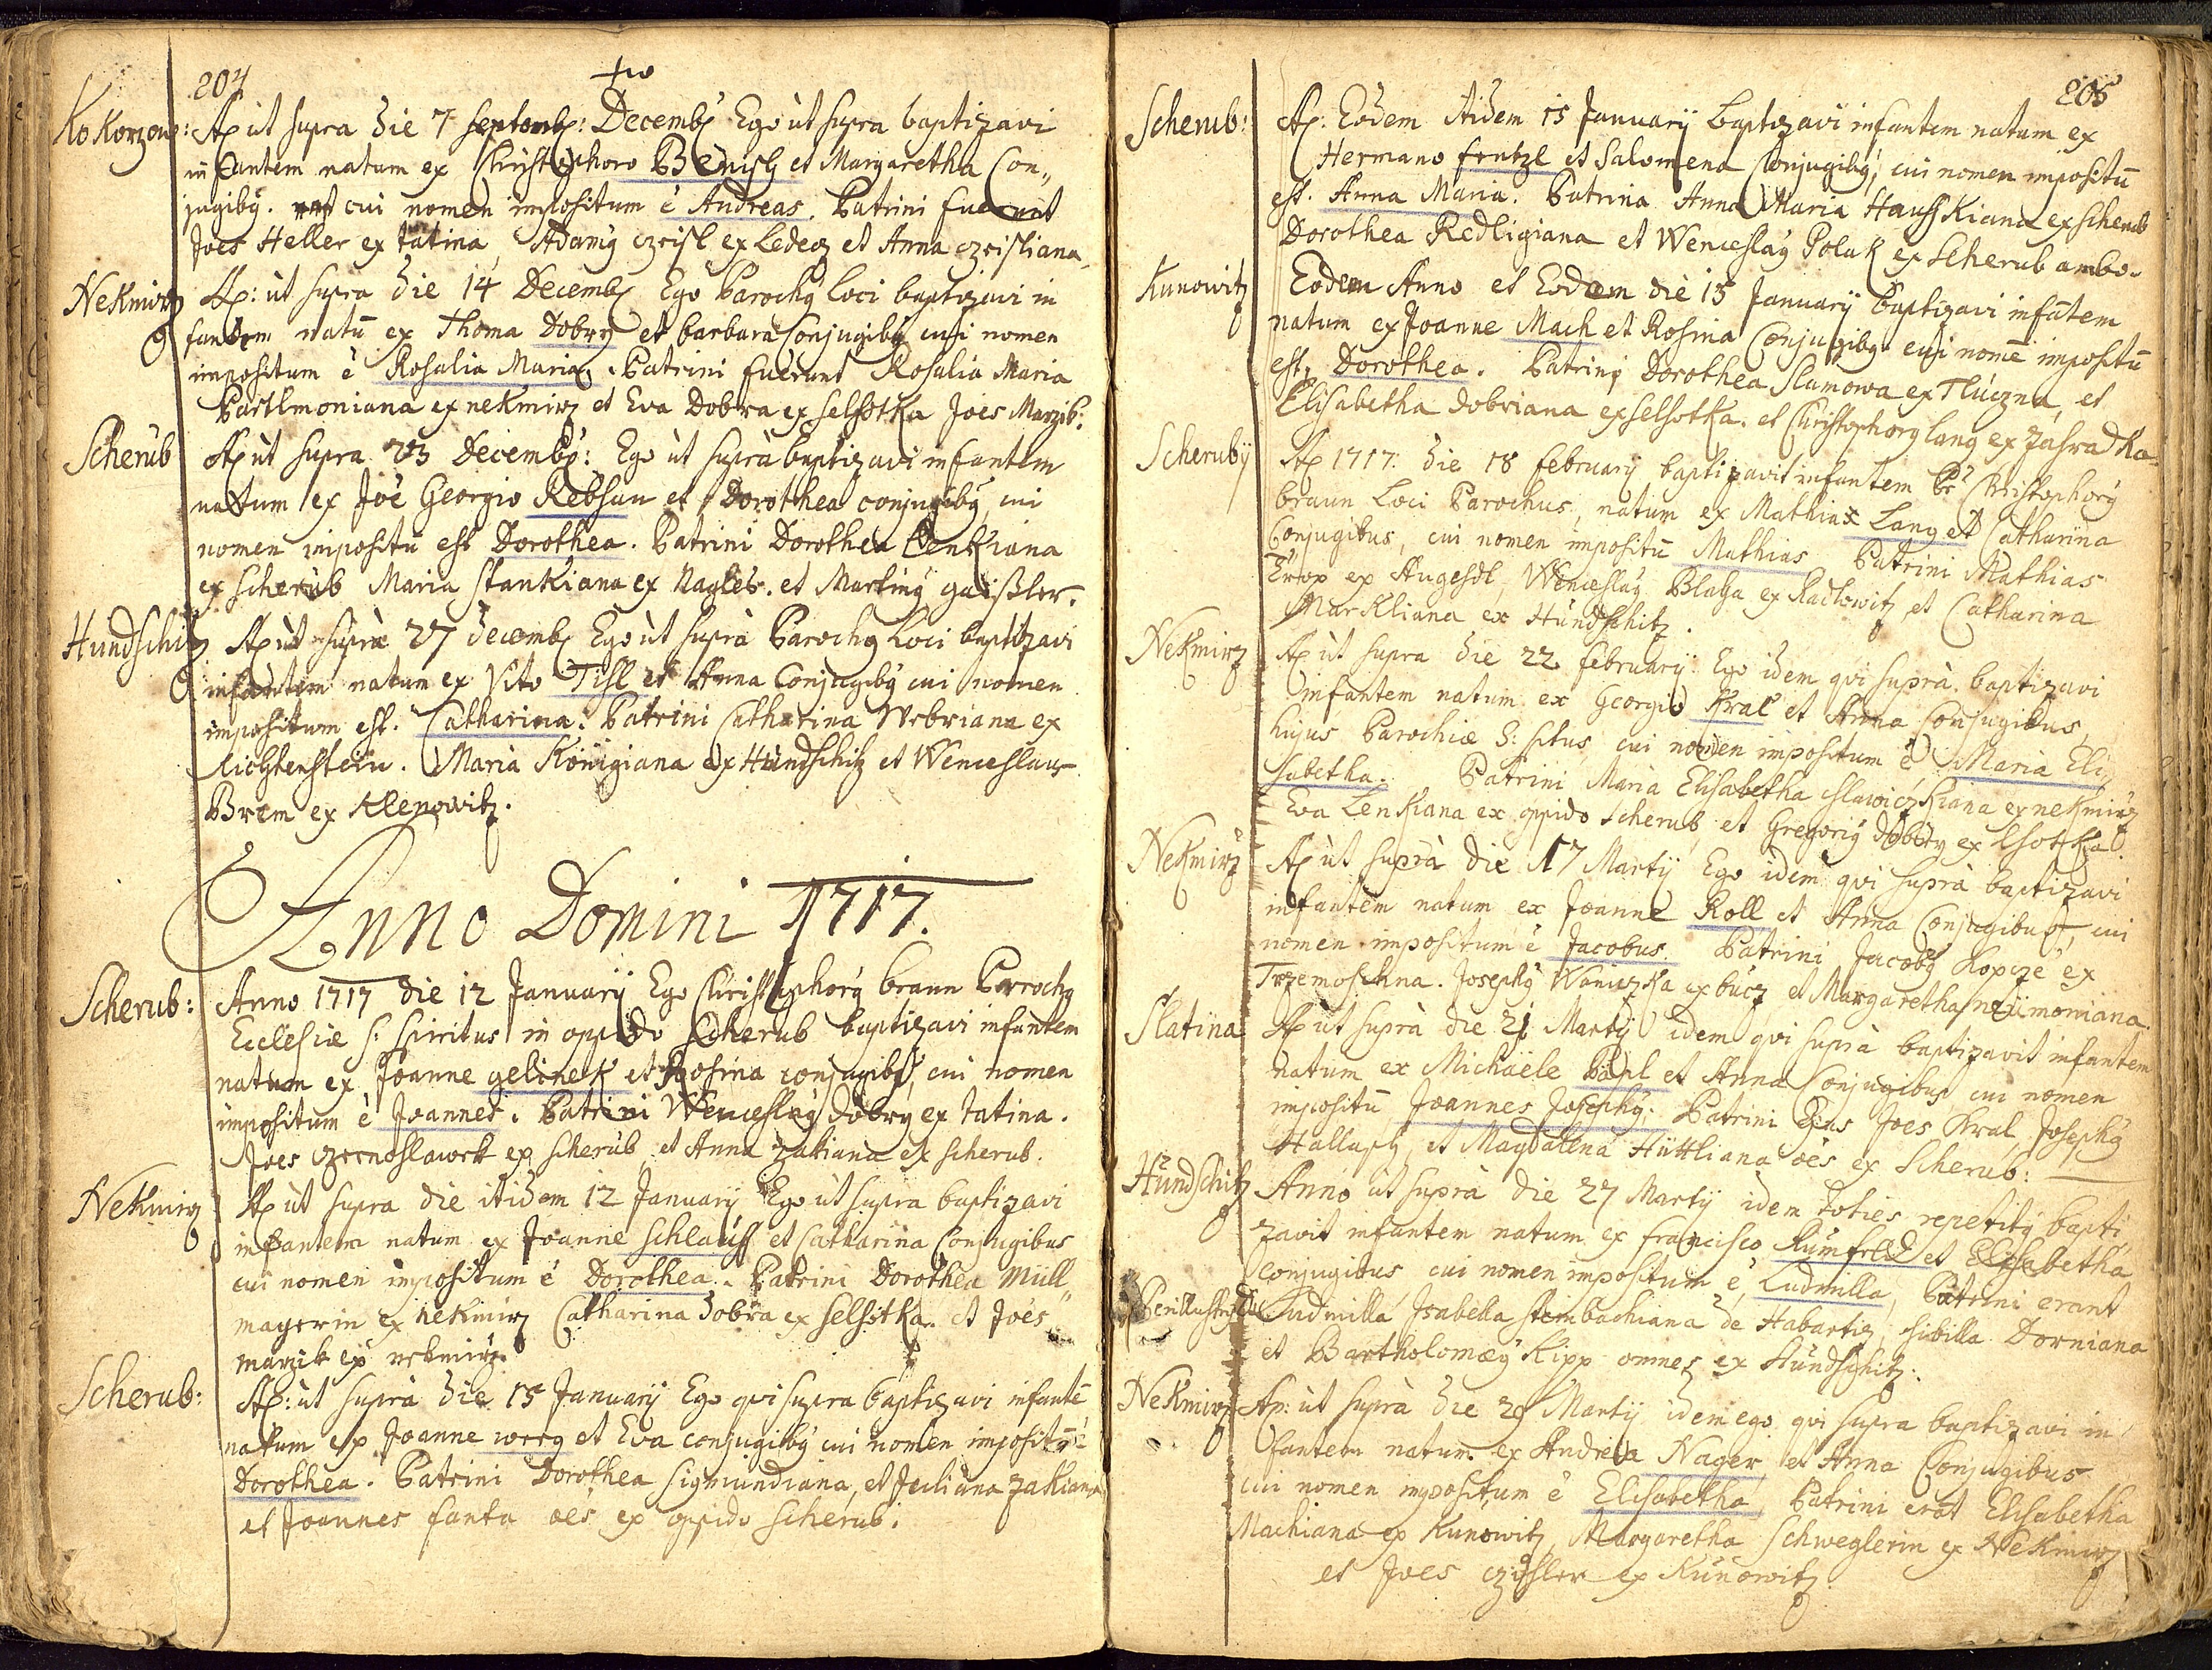 204
KoKorzow: Ao ùt supra die 7 Septemb: Decemb Ego ùt supra baptizavi
infantem natum ex Christophoro Benisch et Margaretha Con,,
jugiby. cui nomen impositum è Andreas. Patrini fuerunt
Joes Heller ex tatina, Adamy czisl ex Ledecz et Anna czisliana
NeKmirz Ao: ùt supra die 14 Decemb Ego Parochy loci baptizavi in
fantem natū ex Thoma Dobry et barbara Conjugiby cusi nomen
impositum è Rosalia Maria, Patrini fuerunt Rosalia Maria
Partlmoniana ex neKmirz et Eva Dobra ex selsotka Joes Marzik:
Scherub Ao ùt supra 23 Decemby: Ego ùt suprà baptizavi infantem
natum ex Joē Georgio Rebhan et Dorothea conjugiby, cui
nomen impositū est Dorothea. Patrini Dorothea LenKiana
ex scherùb Maria stanKiana ex Nagler. et Martiny gaißler.
Hundschitz Ao ùt suprà 27 decemb Ego ùt suprà Parochy Loci baptizavi
infantem natum ex Vito Tisl et Anna Conjugiby cui nomen
impositum est. Catharina. Patrini Catharina Webriana ex
Lichtenstein. Maria Königiana ex Hundschitz et Wenceslaus
Brem ex Klenowitz.
Anno Domini 1717.
Scherub: Anno 1717 die 12 Januarij Ego Christophory braun Parrochy
Ecclesiæ S: Spiritus in oppido Scherub baptizavi infantem
natum ex Joanne gelinek et Rosina conjugiby, cui nomen
impositum è Joannes. Patrini Wenceslay dobry ex tatina.
Joes czernoslawek ex scherùb, et Anna zakiana ex scherub.
NeKmirz Ao ùt supra die itidem 12 Januarij Ego ùt supra baptizavi
infantem natum ex Joanne schlauss et Catharina Conjugibus
cui nomen impositum è Dorothea. Patrini Dorothea Müll,,
mayerin ex neKmirz Catharina dobra ex selsotka. et Joes
marzik ex nekmirz.
Scherub: Ao: ùt suprà die 15 Januarij Ego qvi supra baptizavi infantē
natum ex Joanne woreg et Eva conjugiby cui nomen impositū è
Dorothea. Patrini Dorothea sigmundiana, et Juliana zakiana
et Joannes fanta oēs ex oppido scherub.
205
Scherub: Ao: Eodem itidem 15 Januarij baptizavi infantem natum ex
Hermano frntzl et Salomena Conjugiby, cui nomen impositū
est. Anna Maria. Patrina Anna Maria HaussKiana ex scherub
Dorothea Redligiana et Wenceslay Polak ex scherub ambo.
Kunowitz Eodem Anno et Eodem die 15 Januarij baptizavi infātem
natum ex Joanne Mach et Rosina Conjugiby cui nomē impositū
est, Dorothea. Patrini Dorothea slamowa ex Tluczna, et
Elisabetha dobriana ex selsotka. et Christophory lang ex zahradKa
Scheruby Ao 1717. die 18 februarij baptizavit infantem Pr Christophory
braun Loci Parochus, natum ex Mathia Lang et Catharina
Conjugibus, cui nomen impositū Mathias Patrini Mathias
ex Augesdl, Wenceslay Blaha ex Radlowitz et Catharina
MarKliana ex Hundschitz.
NeKmirz Ao ùt supra die 22 februarij Ego idem qvi suprà baptizavi
infantem natum ex Georgio Kral et Anna Conjugibus,
hujus Parochiæ S: situs, cui nomen impositum è Maria Eli,,
sabetha. Patrini Maria Elisabetha slawiczKiana ex neKmirz
Eva LenKiana ex oppido scherub, et Gregoriy dobry ex lhotka
NeKmirz Ao ùt suprà die 17 Martij Ego idem qvi suprà baptizavi
infantem natum ex Joanne Roll et Anna Conjugibus, cui
nomen impositum è Jacobus. Patrini Jacoby Kopczè ex
Trzemoschna. Josephy WaniczKa ex bùcz et Margaretha nezimoniana.
Slatina Ao ùt suprà die 21 Martij idem qvi suprà baptizavit infantem
natum ex Michaële Pahl et Anna Conjugibus cui nomen
impositū Joannes Josephy. Patrini Ejus Joes Kral, Josephy
Hallusch, et Magdalena Hüttliana oēs ex Scherub:
Hundschitz Anno ùt suprà die 27 Martij idem toties repetity bapti
zavit infantem natum ex francisco Rumfeld et Elisabetha
conjugibus cui nomen impositum è, Ludmilla, Patrini erant
Perillustris Dna Ludmilla Isabella steinbachiana de Habartiz, sibilla Dorniana
et Bartholomæy Kipp omnes ex Hùndschitz.
NeKmirz Ao: ùt suprà die 29 Martij idem ego qvi supra baptizavi in
fantem natum ex Andrea Nager et Anna Conjugibus
cui nomen impositum è Elisabetha, Patrini erāt Elisabetha
Machiana ex Kunowitz, Margaretha Schweglerin ex NeKmirz
et Joes czisler ex Kunowitz.